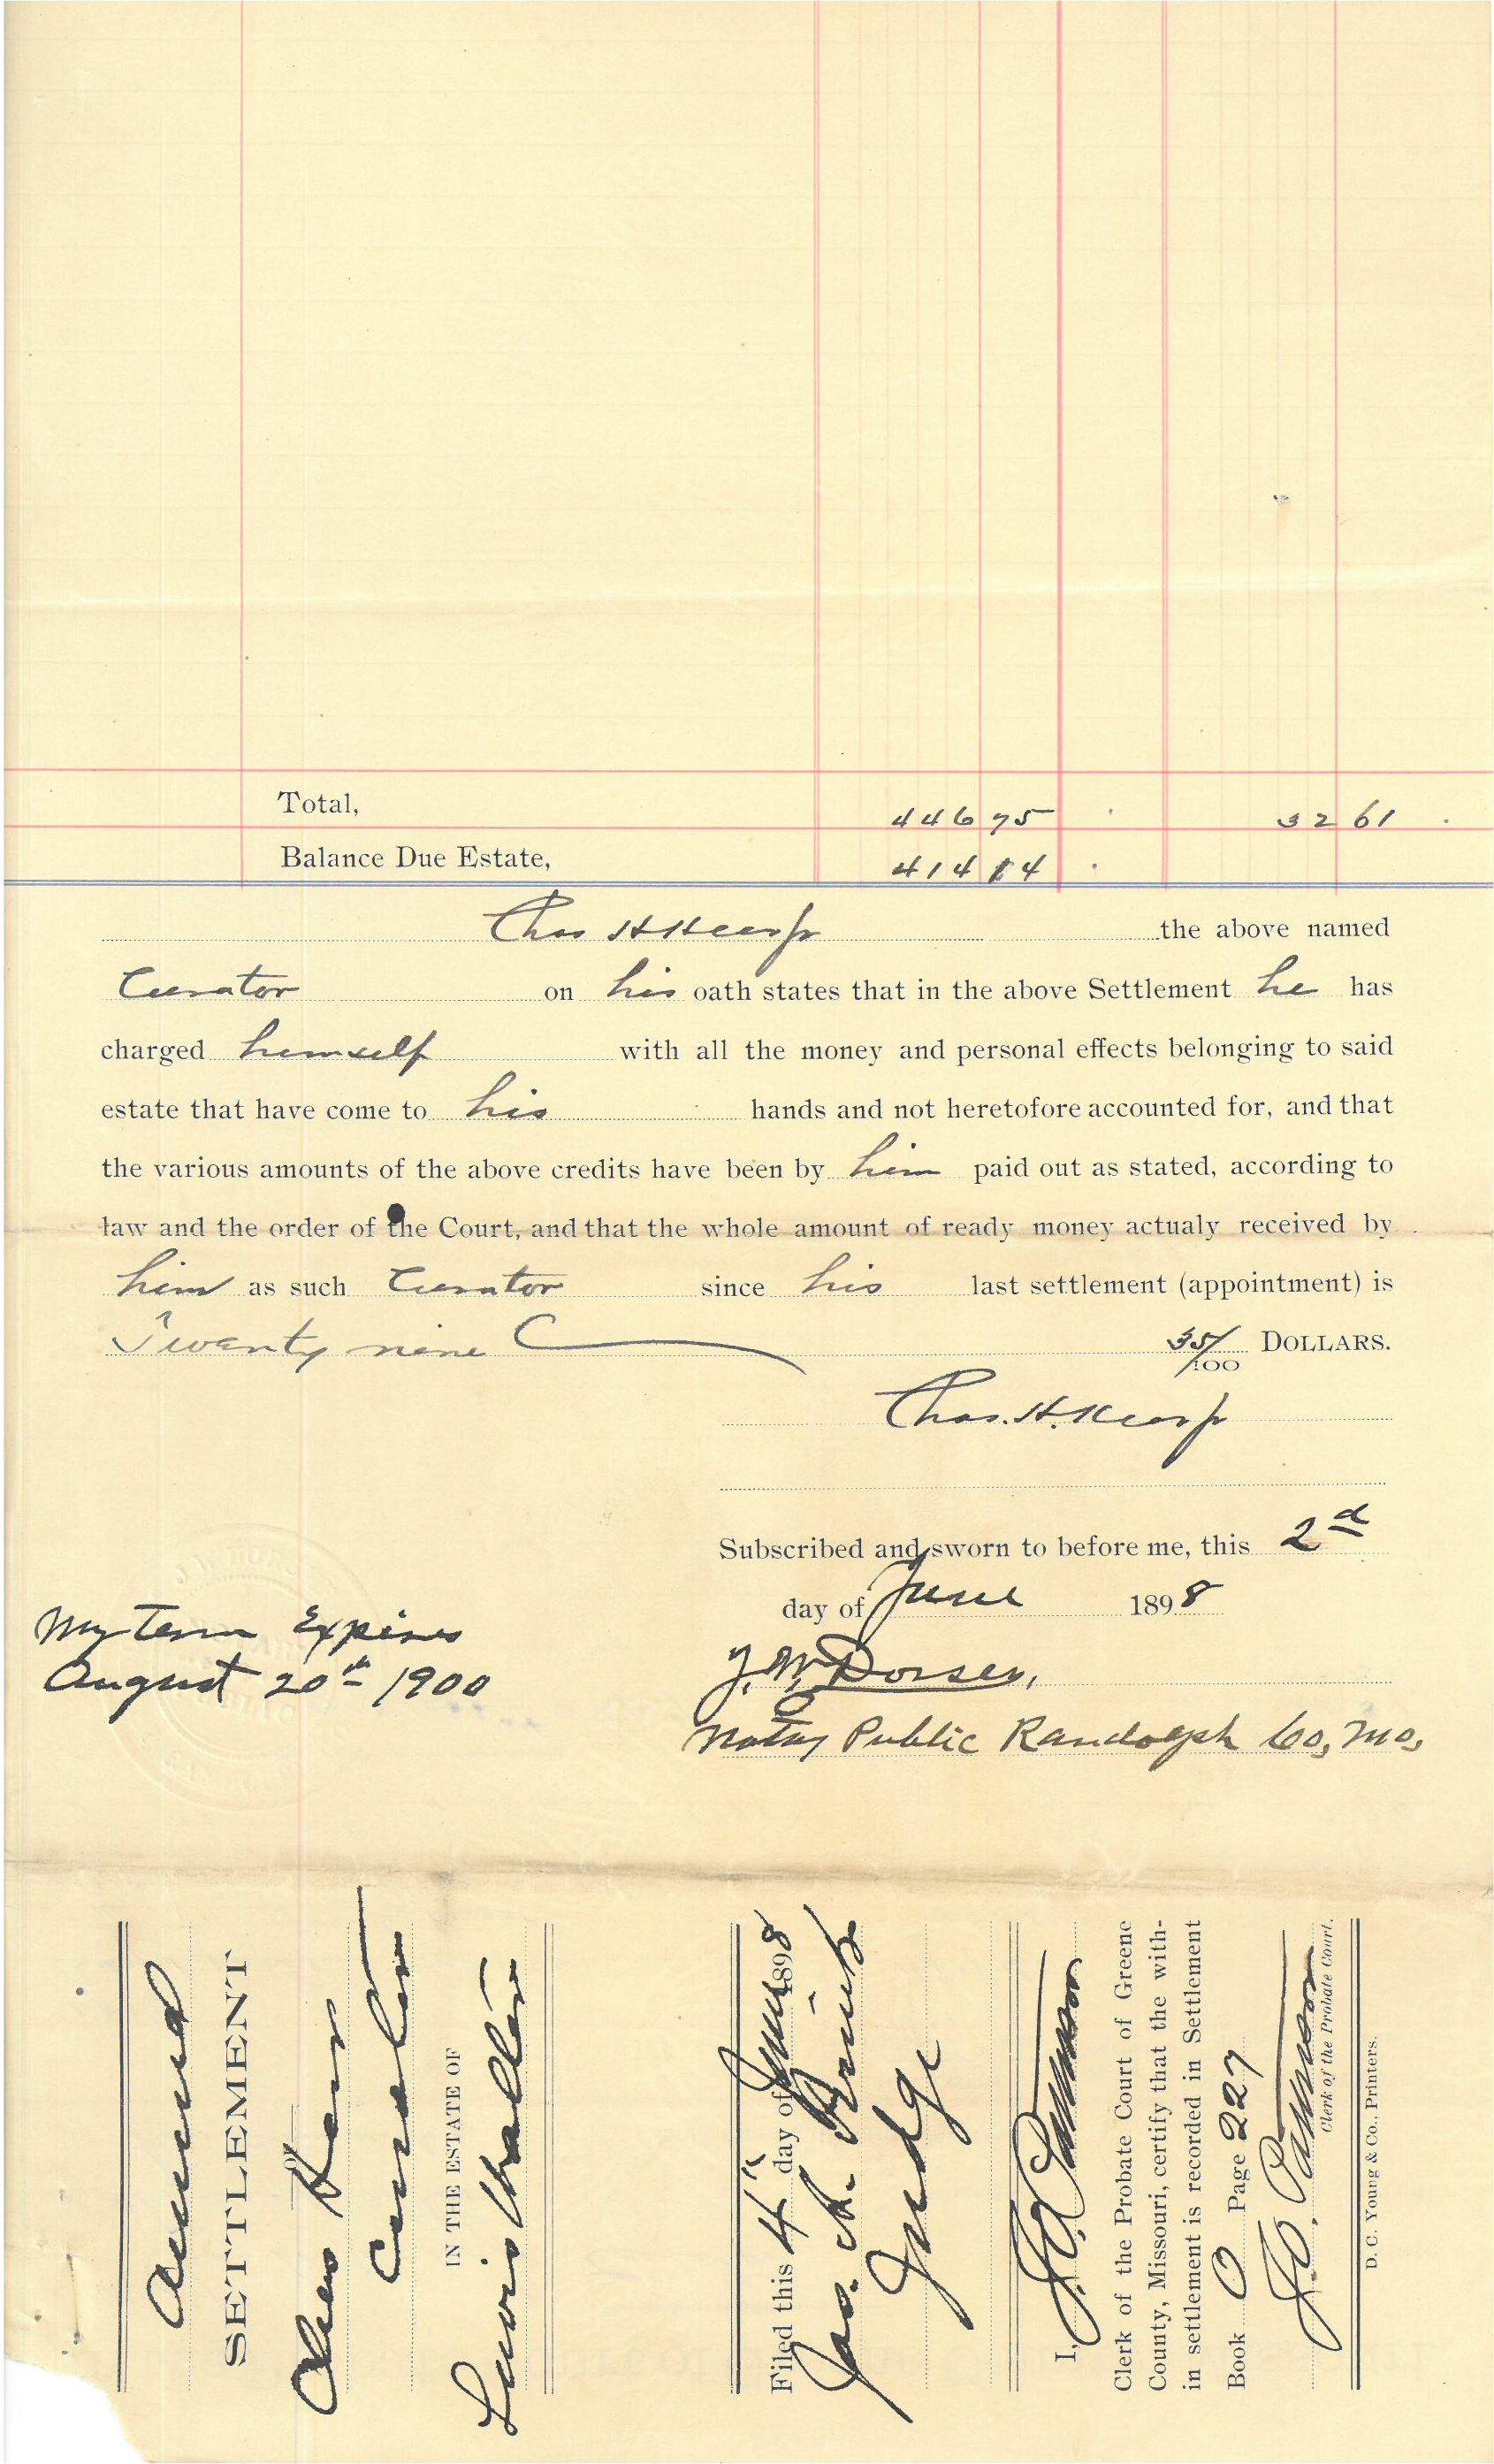 Total, 446 75 32 61
Balance Due Estate, 414 14
Chas H the above named
Curator on his oath states that in the above Settlement he has
charged himself with all the money and personal effects belonging to said
estate that have come to his hands and not heretofore accounted for, and that
the various amounts of the above credits have been by him paid out as stated, according to
law and the order of the Court, and that the whole amount of ready money actualy received by
him as such Curator since his last settlement (appointment) is
Twenty nine 35/100 DOLLARS.
Chas. H.
Subscribed and sworn to before me, this 2d
day of June 1898
My Term Expires
August 20th 1900
Dorsey,
Notary Public Randolph Co, Mo,
Annual
SETTLEMENT
OF
Chas
Curator
IN THE ESTATE OF
Lewis
Filed this 4" day of June 1898
Jas.
Judge
I,
Clerk of the Probate Court of Greene
County, Missouri, certify that the with-
in settlement is recorded in Settlement
Book O Page 227
Clerk of the Probate Court.
D. C. Young & Co., Printers.